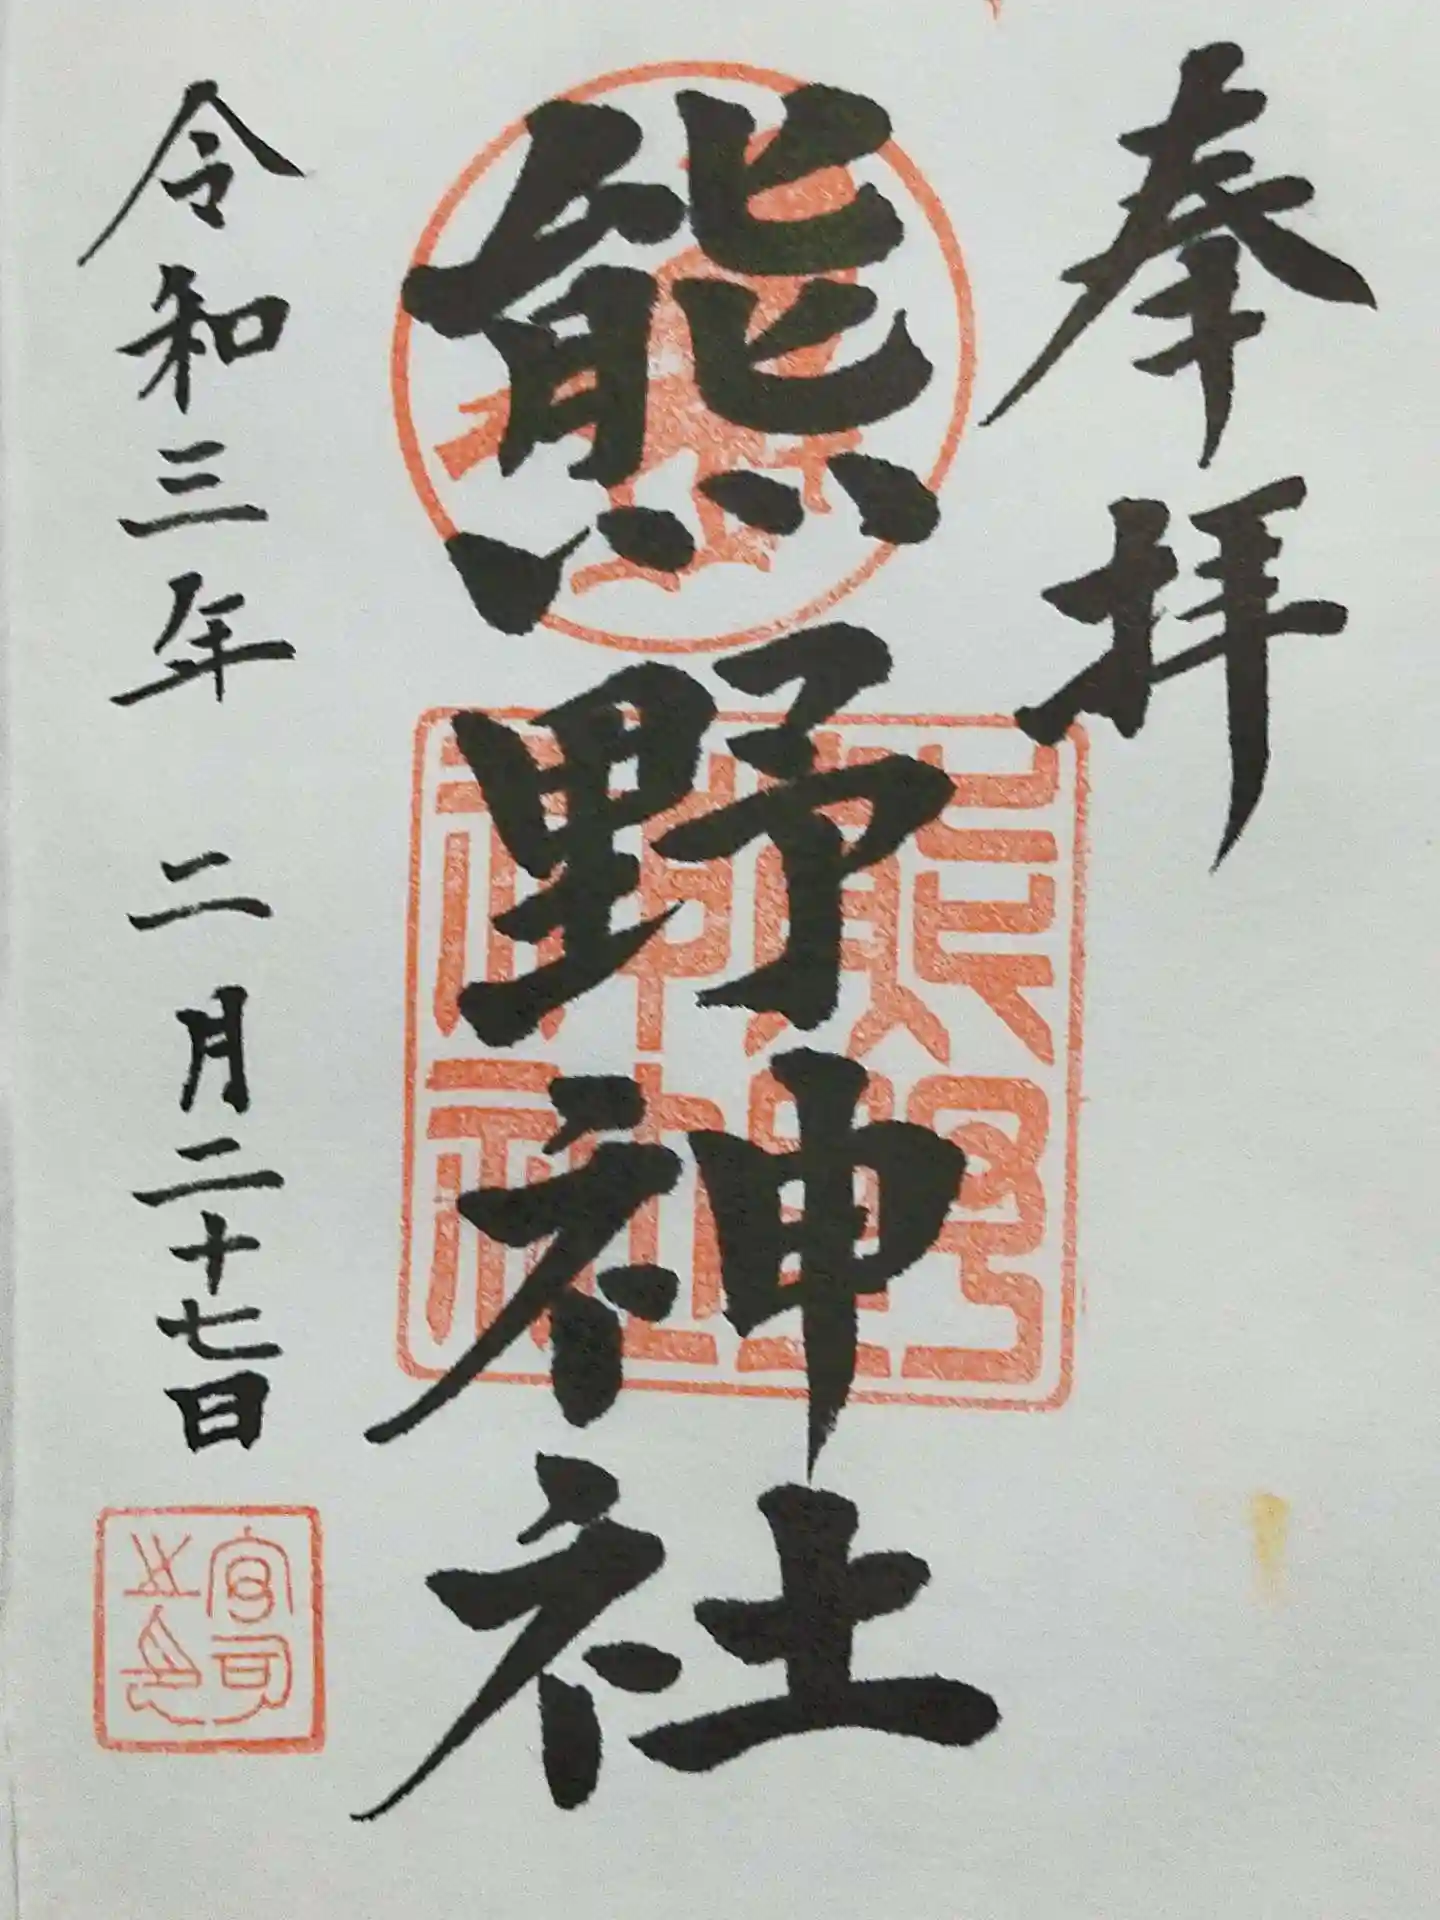 奉拝
熊野神社
熊野
神社
令和三年 二月二十七日
宮司
之印